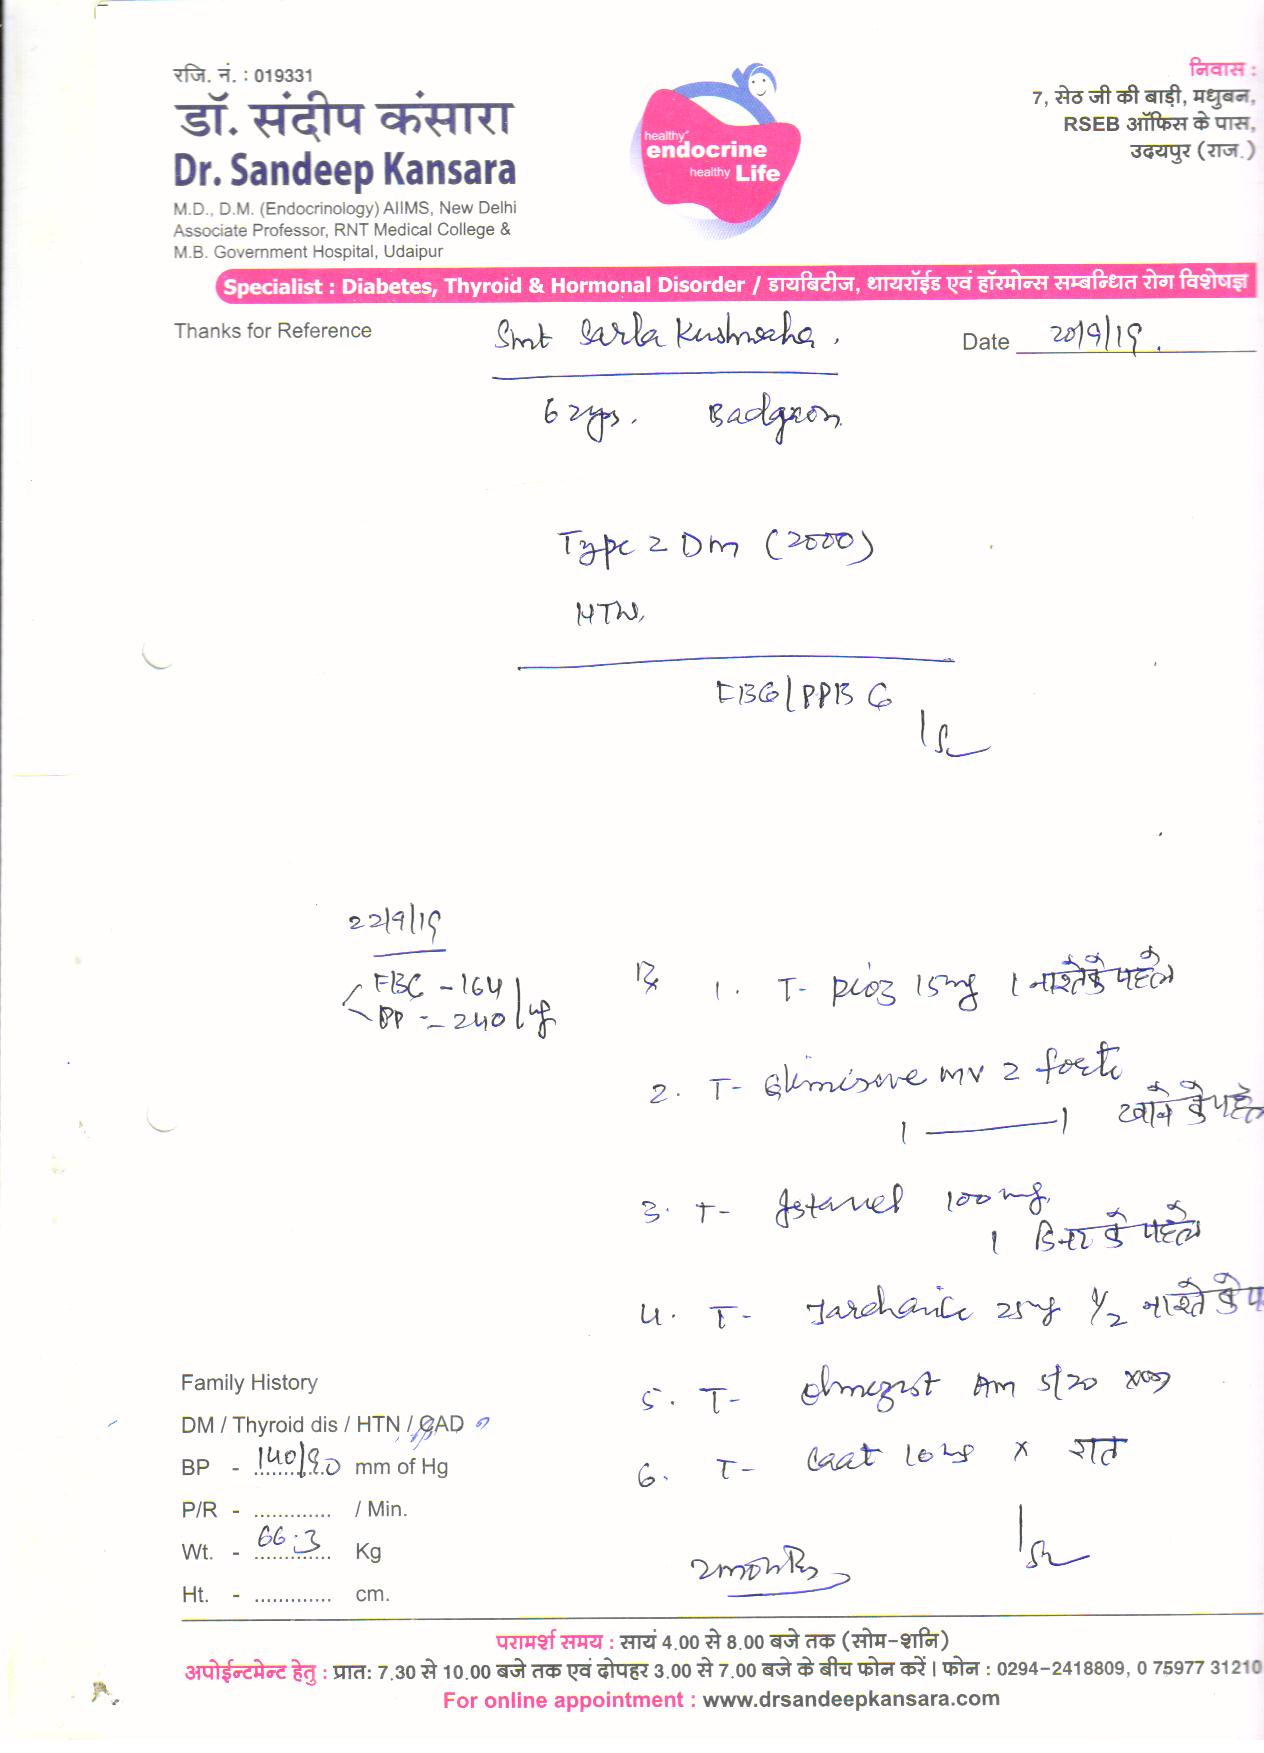 रजि. नं. : 019331
डॉ. संदीप कंसारा
Dr. Sandeep Kansara
M.D., D.M. (Endocrinology) AIIMS, New Delhi
Associate Professor, RNT Medical College &
M.B. Government Hospital, Udaipur
healthy
endocrine
healthy Life
निवास :
7, सेठ जी की बाड़ी, मधुबन,
RSEB ऑफिस के पास,
उदयपुर (राज.)
Specialist : Diabetes, Thyroid & Hormonal Disorder / डायबिटीज, थायरॉईड एवं हॉरमोन्स सम्बन्धित रोग विशेषज्ञ
Thanks for Reference
Smt Sarla Kushwaha.
Date 20/9/19.
62yrs. Badgaon
Type 2 DM (2000)
HTN
FBG/PPBG
22/9/19
FBG - 164
PP - 240
Rx
1. T- Pioz 15mg 1 नाश्ते के पहले
2. T- Glimisave MV 2 forte
1 ——— 1 खाने के पहले
3. T- Istavel 100mg
1 डिनर के पहले
4. T- Jardiance 25mg 1/2 नाश्ते के
5. T- Olmezest AM 5/20
6. T- Caat 10mg x रात
2 months
Family History
DM / Thyroid dis / HTN / CAD
BP - 140/90 mm of Hg
P/R - ............. / Min.
Wt. - 66.3 Kg
Ht. - ............. cm.
परामर्श समय : सायं 4.00 से 8.00 बजे तक (सोम-शनि)
अपोईन्टमेन्ट हेतु : प्रात: 7.30 से 10.00 बजे तक एवं दोपहर 3.00 से 7.00 बजे के बीच फोन करें। फोन : 0294-2418809, 0 75977 31210
For online appointment : www.drsandeepkansara.com